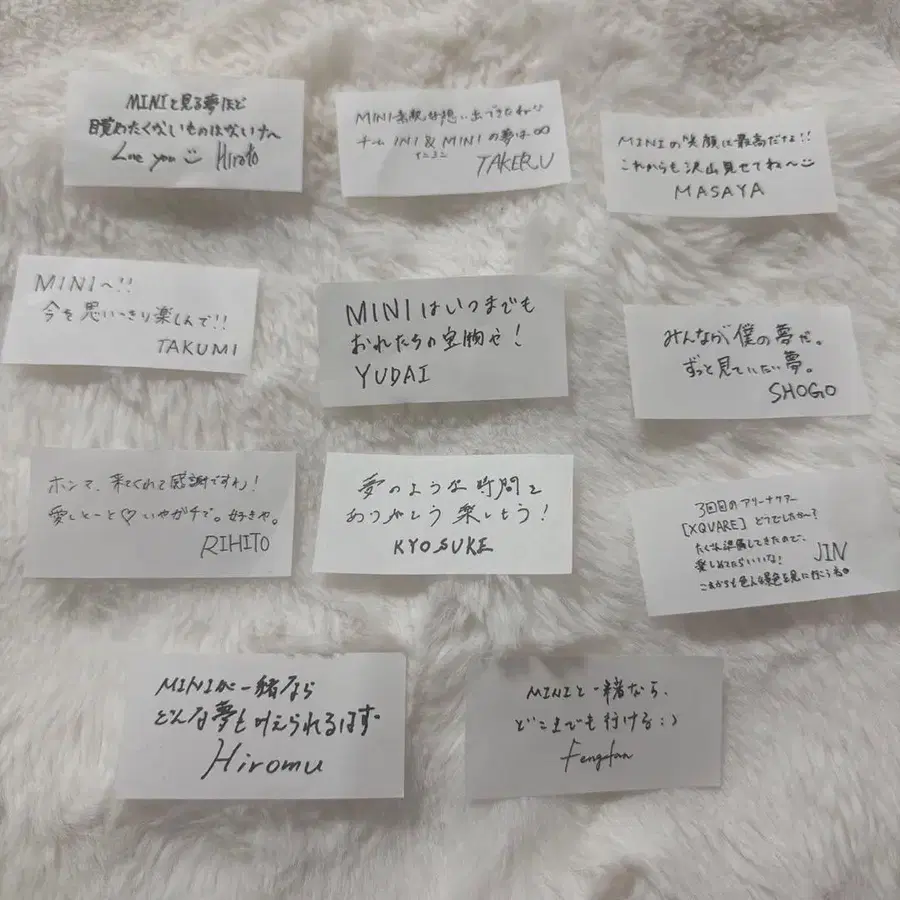 MINIと見る夢ほど
目覚めたくないものはないナ〜
Love you Hiroto
MINI素敵な想い出できたね
チーム INI & MINI の夢は∞
TAKERU
MINIの笑顔は最高だよ!!
これからも沢山見せてね〜
MASAYA
MINIへ!!
今を思いっきり楽しんで!!
TAKUMI
MINIはいつまでも
おれたちの宝物や!
YUDAI
みんなが僕の夢だ。
ずっと見ていたい夢。
SHOGO
ホンマ、来てくれて感謝ですわ!
愛しと〜と♡いやガチで。好きや。
RIHITO
夢のような時間を
ありがとう 楽しもう!
KYOSUKE
3回目のアリーナツアー
[XQUARE] どうでしたか〜?
たくさん準備してきたので、
楽しめてたらいいな!
これからも色んな景色を見に行こうね
JIN
MINIが一緒なら
どんな夢も叶えられるはず。
Hiromu
MINIと一緒なら、
どこまでも行ける:)
Fengfan